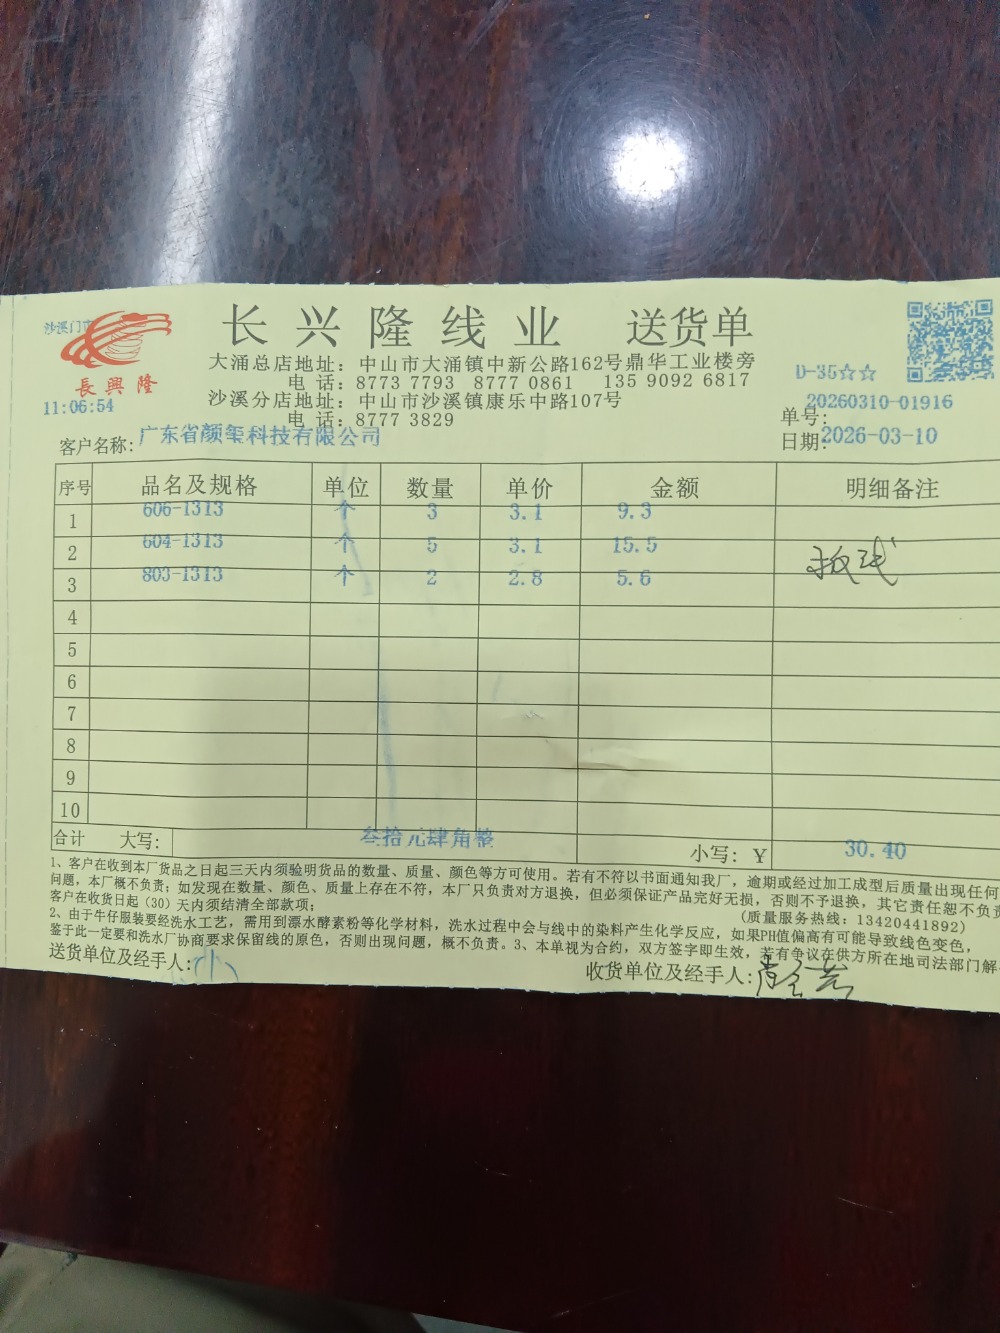 沙溪门市
長興隆
长兴隆线业 送货单
大涌总店地址：中山市大涌镇中新公路162号鼎华工业楼旁
电 话：8773 7793 8777 0861 135 9092 6817
D-35☆☆
沙溪分店地址：中山市沙溪镇康乐中路107号
电 话：8777 3829
11:06:54
单号：20260310-01916
客户名称：广东省颜玺科技有限公司
日期：2026-03-10
序号 品名及规格 单位 数量 单价 金额 明细备注
1 606-1313 个 3 3.1 9.3
2 604-1313 个 5 3.1 15.5
板线
3 803-1313 个 2 2.8 5.6
4
5
6
7
8
9
10
合计 大写：叁拾元肆角整 小写：¥ 30.40
1、客户在收到本厂货品之日起三天内须验明货品的数量、质量、颜色等方可使用。若有不符以书面通知我厂，逾期或经过加工成型后质量出现任何
问题，本厂概不负责；如发现在数量、颜色、质量上存在不符，本厂只负责对方退换，但必须保证产品完好无损，否则不予退换，其它责任恕不负责
客户在收货日起（30）天内须结清全部款项； (质量服务热线：13420441892)
2、由于牛仔服装要经洗水工艺，需用到漂水酵素粉等化学材料，洗水过程中会与线中的染料产生化学反应，如果PH值偏高有可能导致线色变色，
鉴于此一定要和洗水厂协商要求保留线的原色，否则出现问题，概不负责。3、本单视为合约，双方签字即生效，若有争议在供方所在地司法部门解
送货单位及经手人：小
收货单位及经手人：